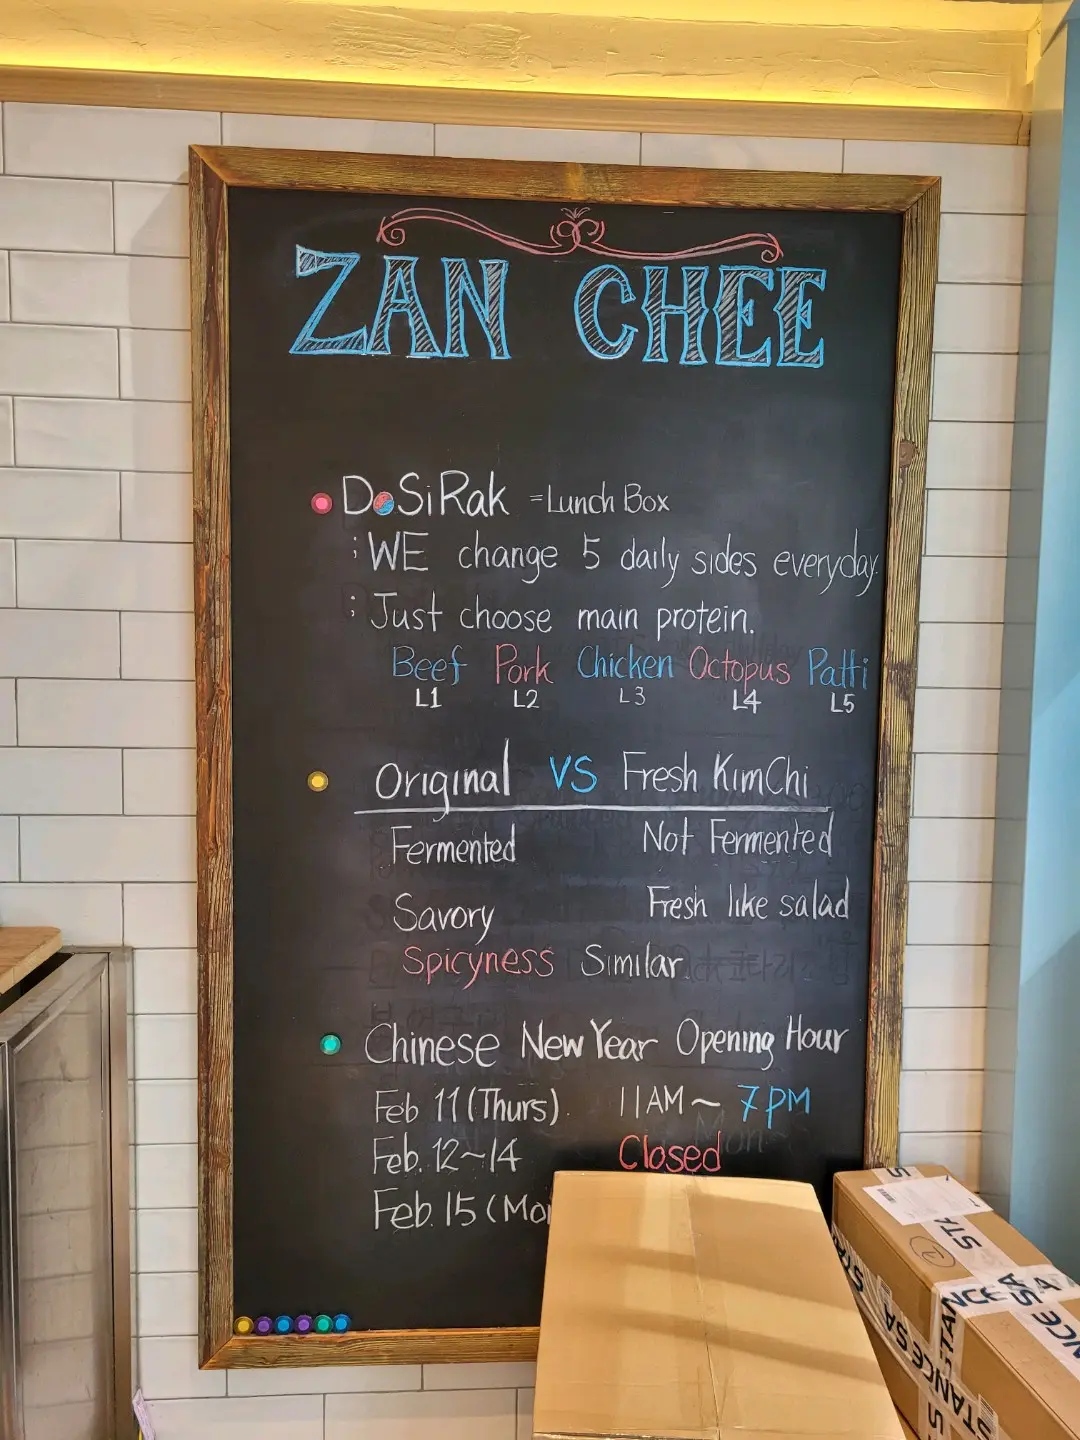 ZAN CHEE
DoSiRak = Lunch Box
; WE change 5 daily sides everyday.
; Just choose main protein.
Beef Pork Chicken Octopus Patti
L1 L2 L3 L4 L5
Original VS Fresh KimChi
Fermented Not Fermented
Savory Fresh like salad
Spicyness Similar
Chinese New Year Opening Hour
Feb 11 (Thurs). 11AM ~ 7PM
Feb. 12~14 Closed
Feb. 15 (Mo